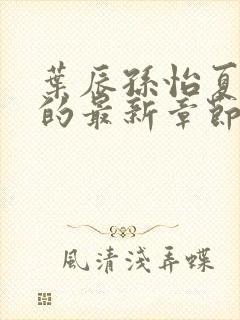 葉辰孫怡夏
的最新章節
風清淺弄蝶